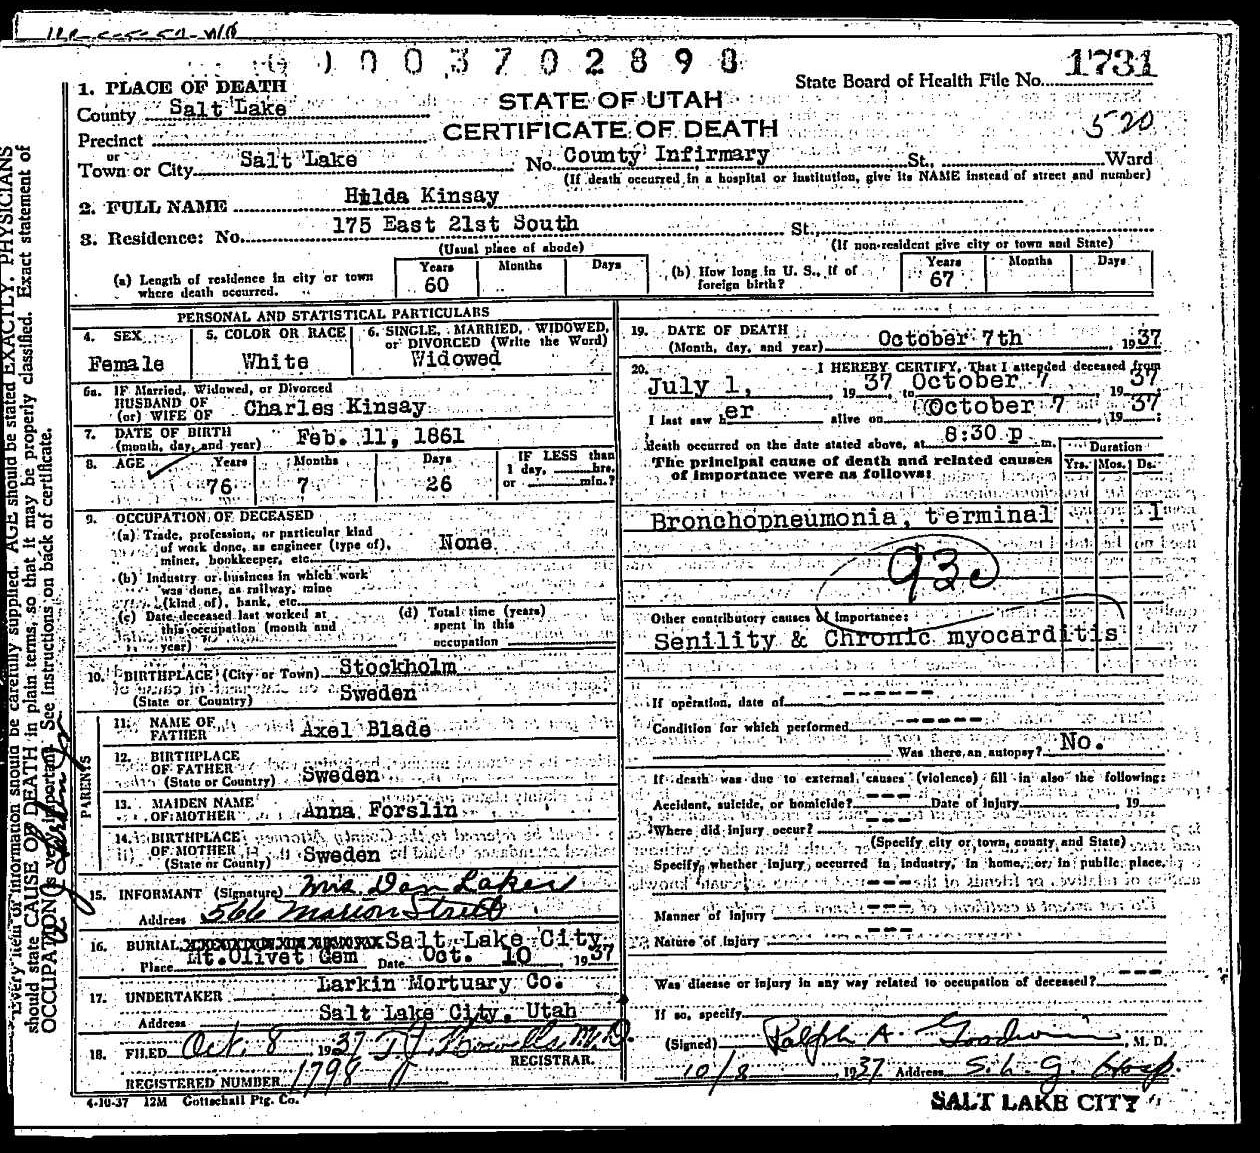 0003702890
1731
State Board of Health File No.
1. PLACE OF DEATH
County Salt Lake
STATE OF UTAH
CERTIFICATE OF DEATH
520
Precinct
or
Town or City Salt Lake No. County Infirmary St., Ward
(If death occurred in a hospital or institution, give its NAME instead of street and number)
2. FULL NAME Hilda Kinsay
3. Residence: No. 175 East 21st South St.,
(Usual place of abode) (If non-resident give city or town and State)
(a) Length of residence in city or town where death occurred. Years 60 Months Days
(b) How long in U. S., if of foreign birth? Years 67 Months Days
PERSONAL AND STATISTICAL PARTICULARS
4. SEX Female
5. COLOR OR RACE White
6. SINGLE, MARRIED, WIDOWED, or DIVORCED (Write the Word) Widowed
6a. IF Married, Widowed, or Divorced
HUSBAND OF
(or) WIFE OF Charles Kinsay
7. DATE OF BIRTH
(month, day, and year) Feb. 11, 1861
8. AGE Years Months Days IF LESS than
1 day, hrs.
76 7 26 or min.?
9. OCCUPATION OF DECEASED
(a) Trade, profession, or particular kind
of work done, as engineer (type of),
miner, bookkeeper, etc. None
(b) Industry or business in which work
was done, as railway, mine
(kind of), bank, etc.
(c) Date deceased last worked at
this occupation (month and
year)
(d) Total time (years)
spent in this
occupation
10. BIRTHPLACE (City or Town) Stockholm
(State or Country) Sweden
PARENTS
11. NAME OF
FATHER Axel Blade
12. BIRTHPLACE
OF FATHER
(State or Country) Sweden
13. MAIDEN NAME
OF MOTHER Anna Forslin
14. BIRTHPLACE
OF MOTHER
(State or Country) Sweden
15. INFORMANT (Signature) Mrs Dan Laker
Address 566 Marion Street
16. BURIAL Salt Lake City
Place Mt. Olivet Cem Date Oct. 10, 1937
17. UNDERTAKER Larkin Mortuary Co.
Address Salt Lake City, Utah
18. FILED Oct. 8 1937 T. J. Howells, M.D.
REGISTRAR.
REGISTERED NUMBER 1798
4-10-37 12M Gottschall Ptg. Co.
19. DATE OF DEATH
(Month, day, and year) October 7th, 1937
20. I HEREBY CERTIFY, That I attended deceased from
July 1, 1937 to October 7 1937
I last saw her alive on October 7, 1937;
death occurred on the date stated above, at 8:30 p m.
The principal cause of death and related causes
of importance were as follows:
Duration
Yrs. Mos. Ds.
Bronchopneumonia, terminal 1
93c
Other contributory causes of importance:
Senility & Chronic myocarditis
If operation, date of ------
Condition for which performed ------
Was there an autopsy? No.
If death was due to external causes (violence) fill in also the following:
Accident, suicide, or homicide? --- Date of injury, 19
Where did injury occur? ---
(Specify city or town, county and State)
Specify whether injury occurred in industry, in home, or in public place,
---
Manner of injury ---
Nature of injury ---
Was disease or injury in any way related to occupation of deceased? ---
If so, specify
(Signed) Ralph A. Goodwin, M. D.
10/8 1937 Address S. L. G. Hosp.
SALT LAKE CITY
Every item of information should be carefully supplied. AGE should be stated EXACTLY. PHYSICIANS
should state CAUSE OF DEATH in plain terms, so that it may be properly classified. Exact statement of
OCCUPATION is very important. See instructions on back of certificate.